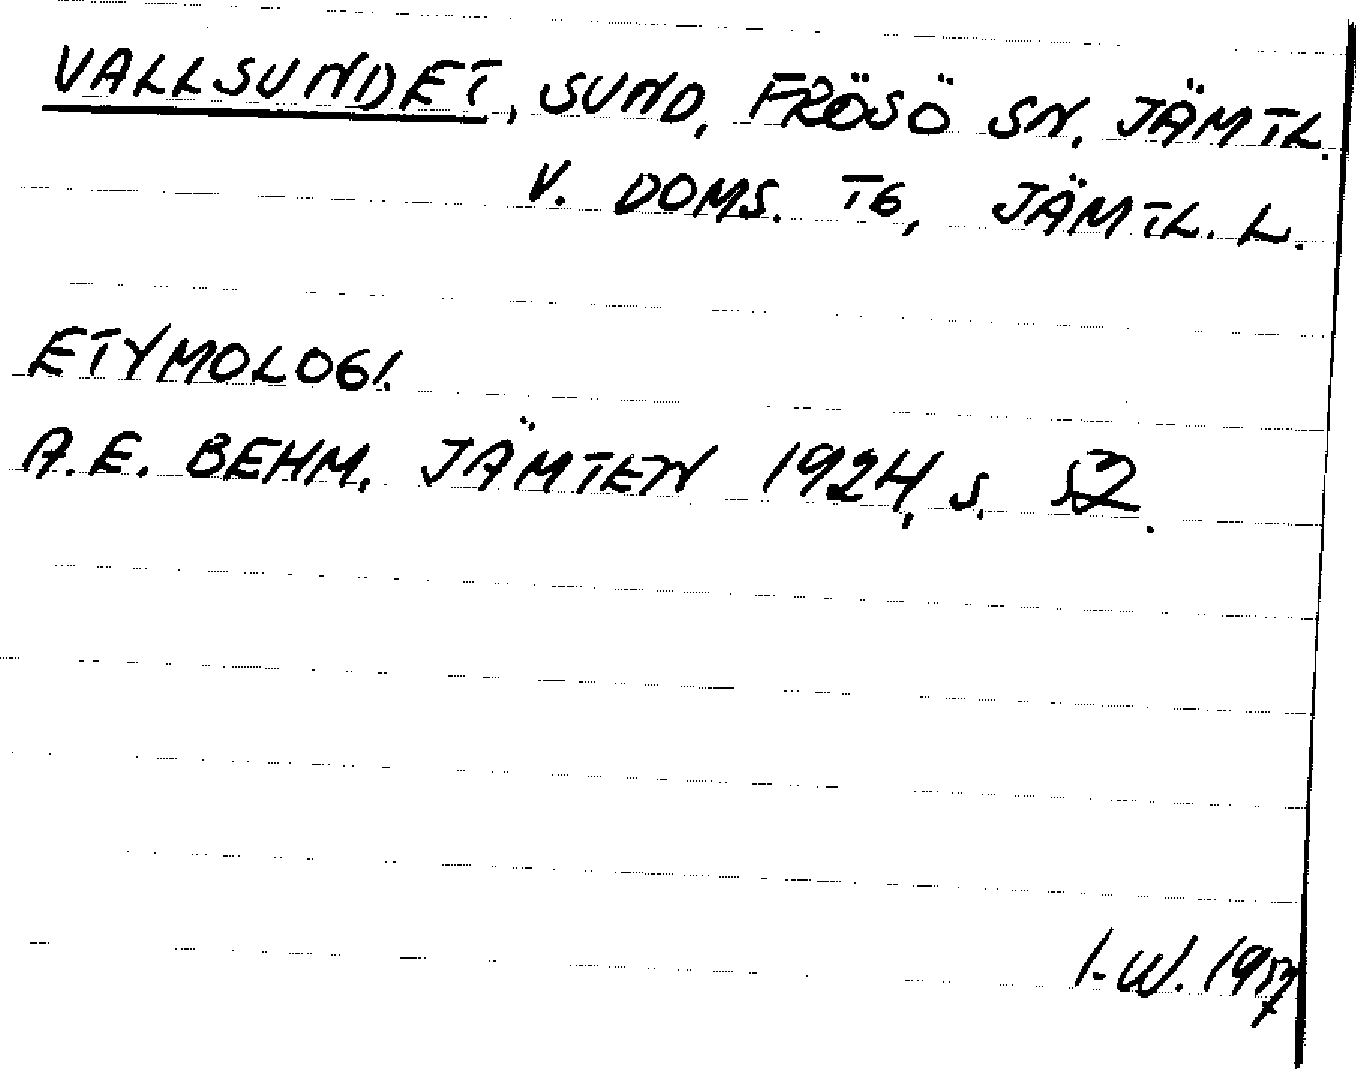 VALLSUNDET, SUND, FRÖSÖ SN, JÄMTL.
V. DOMS. TG, JÄMTL. L.
ETYMOLOGI.
A.E. BEHM. JÄMTEN 1924, S. 52.
I-W. 1957